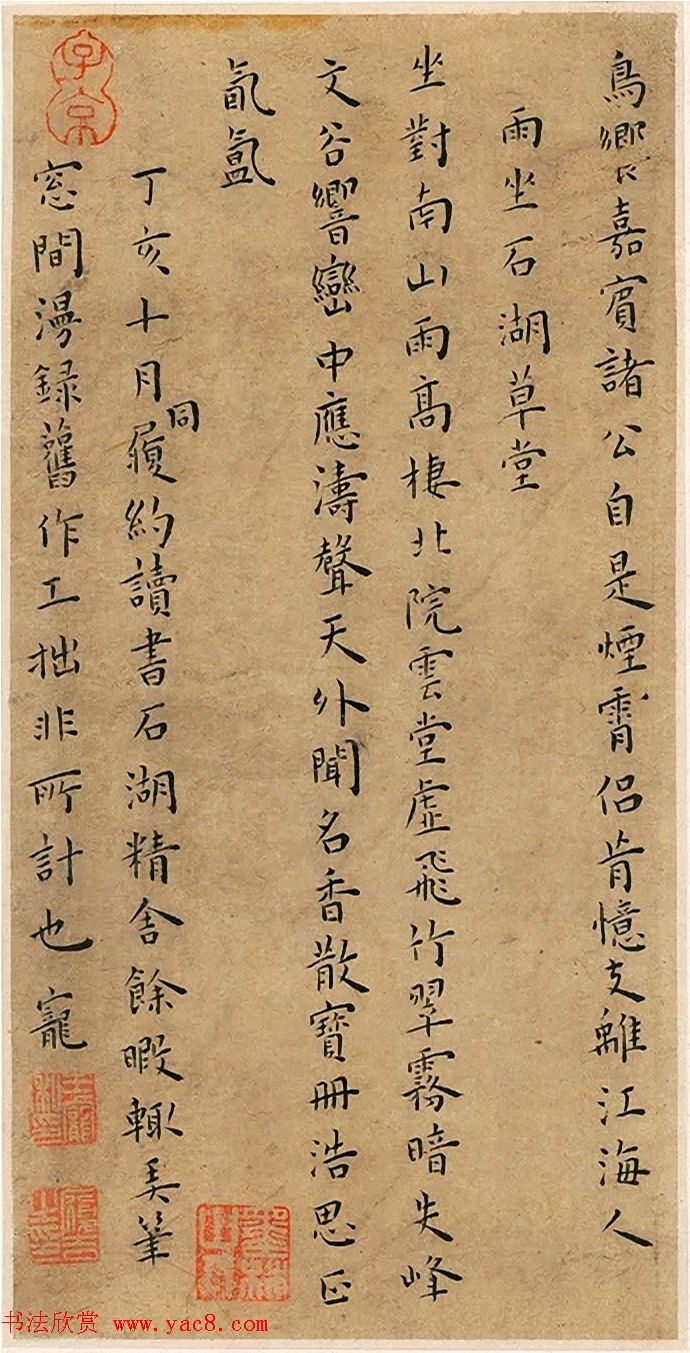 鳥嚮嘉賓諸公自是煙霄侶肯憶支離江海人
雨坐石湖草堂
坐對南山雨高棲北院雲堂虛飛竹翠霧暗失峰
文谷響巒中應濤聲天外聞名香散寶冊浩思正
氤氳
丁亥十月同履約讀書石湖精舍餘暇輒弄筆
窓間漫録舊作工拙非所計也寵
子京
王寵
书法欣赏 www.yac8.com